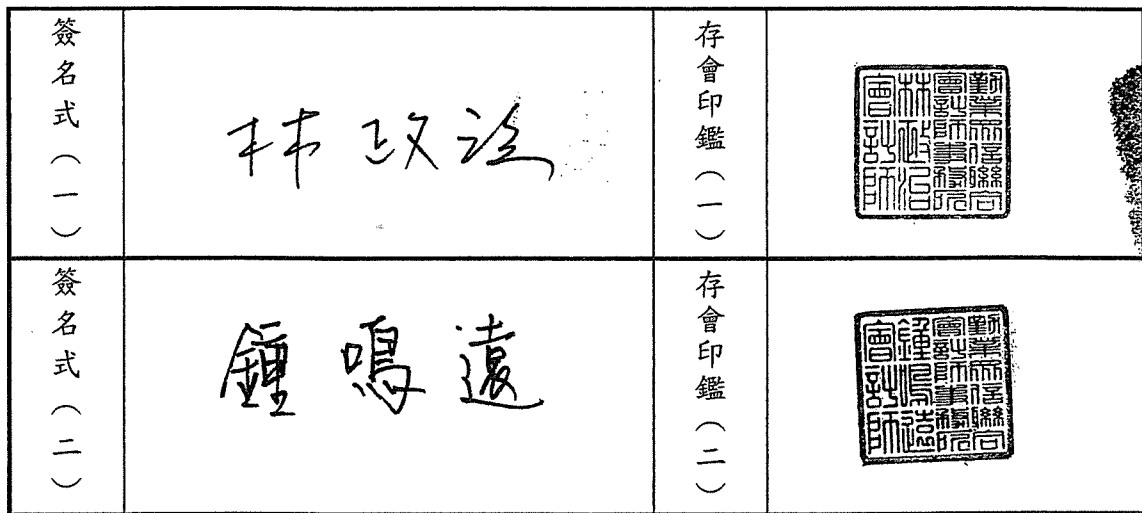 簽名式（一）
林政治
存會印鑑（一）
勤業眾信聯合
會計師事務所
林政治
會計師
簽名式（二）
鍾鳴遠
存會印鑑（二）
勤業眾信聯合
會計師事務所
鍾鳴遠
會計師